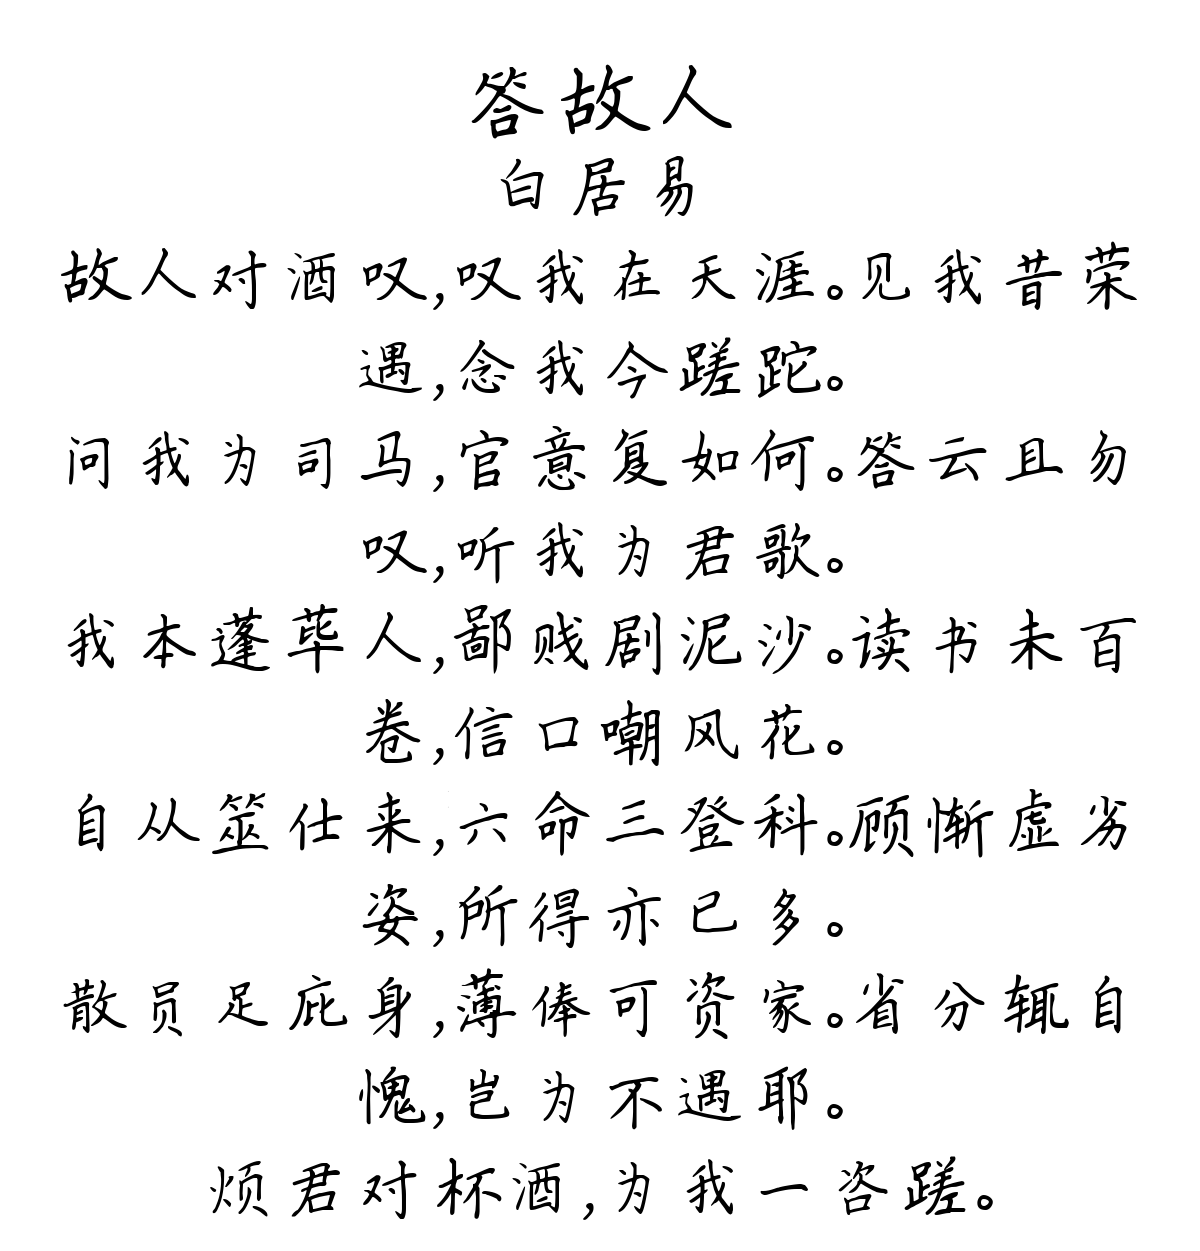 答故人
白居易
故人对酒叹,叹我在天涯。见我昔荣
遇,念我今蹉跎。
问我为司马,官意复如何。答云且勿
叹,听我为君歌。
我本蓬荜人,鄙贱剧泥沙。读书未百
卷,信口嘲风花。
自从筮仕来,六命三登科。顾惭虚劣
姿,所得亦已多。
散员足庇身,薄俸可资家。省分辄自
愧,岂为不遇耶。
烦君对杯酒,为我一咨蹉。